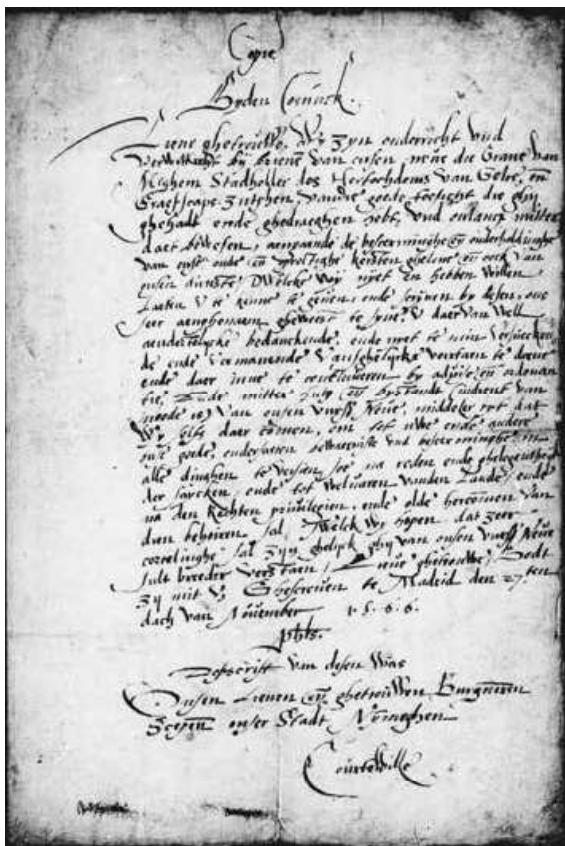 Copie
By den Coninck.
Lieve ghetrouwe, Wy zyn onderricht und
verwitticht by brieven van onsen neve die Grave van
Meghem Stadholder des Hertochdoms van Gelre, en
Graefscaps Zutphen, vande goede toesight die ghy
ghehadt ende ghedraeghen hebt, und onlancx
daer bewesen, aengaende de bescherminghe en onderhaldinghe
van onse oude en
onsen dienste, Dwelcke wy nyet en hebben willen
Laeten te kennen te geven, ende scryven by desen, ons
seer aenghenaem gheweest te syne, daer van Well
bedanckende, ende niet te min versuecken
de ende vermanende van ghelycke voortaen te doene
ende daer inne te by advise en ordonan
tie,
noode is, van onsen neve, middeler tyt dat
Wy selve daer comen, om tot uwe ende andere
onse goede ondersaten bewaernisse und bescherminghe in
alle dinghen te versien, soe na reden ende ghelegentheyt
der saecken, ende tot welvaren vanden Lande, ende
na den Rechten privilegien, ende olde hercomen van
dien behoren sal, Twelck wy hopen dat zeer
cortelinghe sal zyn ghelyck ghy van onsen neve
sult breeder verstaen, Lieve ghetrouwe, Godt
zy mit U, Ghescreven te Madrid den 27.ten
dach van November 1566.
phls.
van desen was
Onsen Lieven en ghetrouwen Burgmren
Scepen onser Stadt Nymeghen
Courtewille